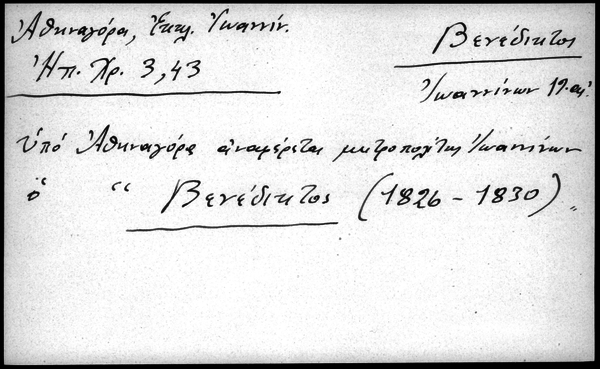 Ἀθηναγόρα, Ἐκκλ. Ἰωαννίν.
Ἠπ. Χρ. 3,43
Βενέδικτος
Ἰωαννίνων 19. αἰ.
Ὑπό Ἀθηναγόρα ἀναφέρεται μητροπολίτης Ἰωαννίνων
ὁ “ Βενέδικτος (1826 - 1830) „